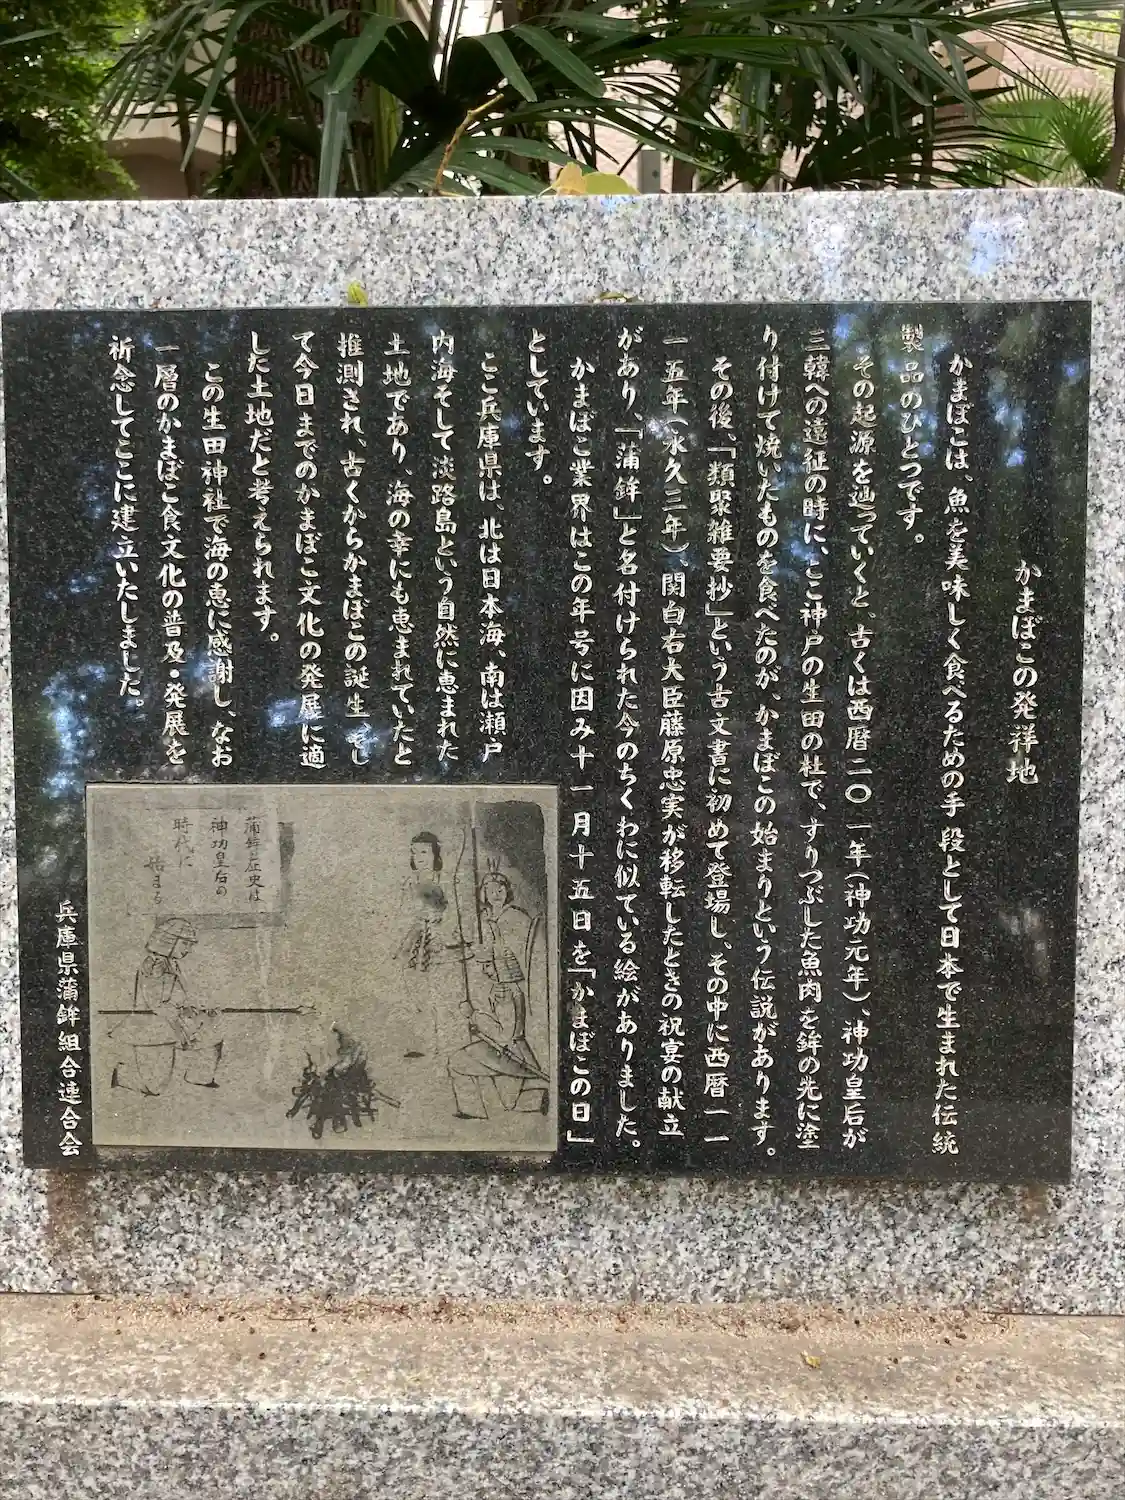 かまぼこの発祥地
かまぼこは、魚を美味しく食べるための手段として日本で生まれた伝統
製品のひとつです。
その起源を辿っていくと、古くは西暦二〇一年(神功元年)、神功皇后が
三韓への遠征の時に、ここ神戸の生田の杜で、すりつぶした魚肉を鉾の先に塗
り付けて焼いたものを食べたのが、かまぼこの始まりという伝説があります。
その後、「類聚雑要抄」という古文書に初めて登場し、その中に西暦一一
一五年(永久三年)、関白右大臣藤原忠実が移転したときの祝宴の献立
があり、「蒲鉾」と名付けられた今のちくわに似ている絵がありました。
かまぼこ業界はこの年号に因み十一月十五日を「かまぼこの日」
としています。
ここ兵庫県は、北は日本海、南は瀬戸
内海そして淡路島という自然に恵まれた
土地であり、海の幸にも恵まれていたと
推測され、古くからかまぼこの誕生、そし
て今日までのかまぼこ文化の発展に適
した土地だと考えられます。
この生田神社で海の恵に感謝し、なお
一層のかまぼこ食文化の普及・発展を
祈念してここに建立いたしました。
兵庫県蒲鉾組合連合会
蒲鉾の歴史は
神功皇后の
時代に
始まる